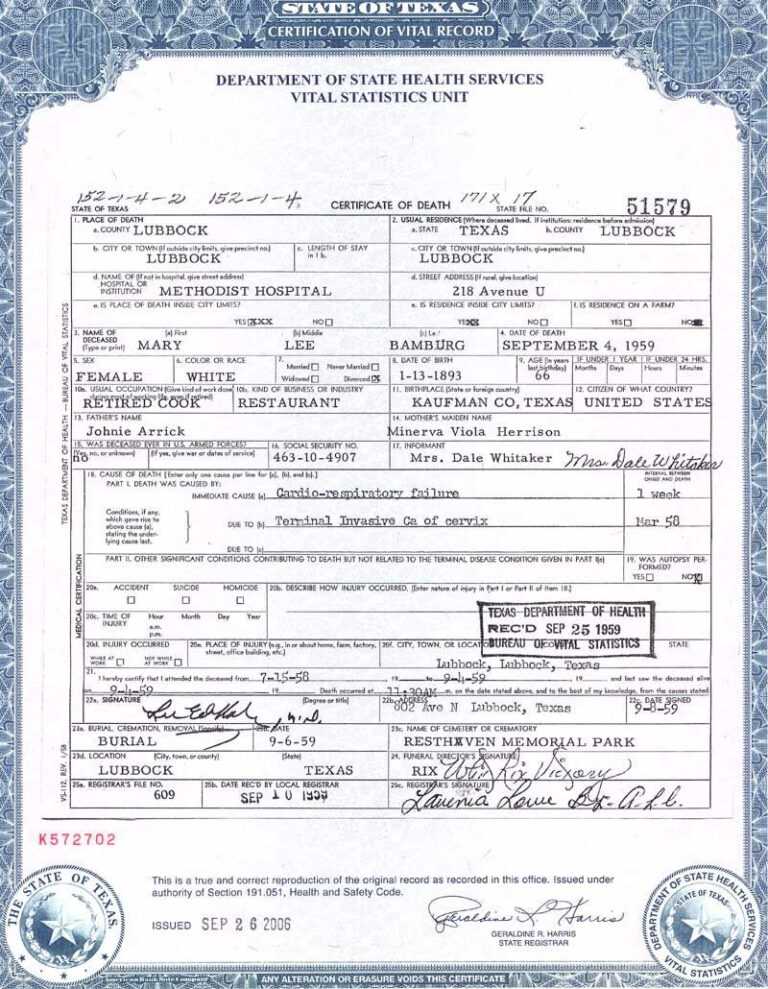 STATE OF TEXAS
CERTIFICATION OF VITAL RECORD
DEPARTMENT OF STATE HEALTH SERVICES
VITAL STATISTICS UNIT
152-1-4-2 152-1-4 171X 17
STATE OF TEXAS CERTIFICATE OF DEATH STATE FILE NO. 51579
1. PLACE OF DEATH 2. USUAL RESIDENCE (Where deceased lived. If institution: residence before admission)
a. COUNTY LUBBOCK a. STATE TEXAS b. COUNTY LUBBOCK
b. CITY OR TOWN (If outside city limits, give precinct no.) c. LENGTH OF STAY in 1 b. c. CITY OR TOWN (If outside city limits, give precinct no.)
LUBBOCK LUBBOCK
d. NAME OF (If not in hospital, give street address) d. STREET ADDRESS (If rural, give location)
HOSPITAL OR INSTITUTION METHODIST HOSPITAL 218 Avenue U
e. IS PLACE OF DEATH INSIDE CITY LIMITS? e. IS RESIDENCE INSIDE CITY LIMITS? f. IS RESIDENCE ON A FARM?
YES XXX NO YES XX NO YES NO
3. NAME OF DECEASED (Type or print) (a) First (b) Middle 4. DATE OF DEATH
MARY LEE BAMBURG SEPTEMBER 4, 1959
5. SEX 6. COLOR OR RACE 7. Married Never Married 8. DATE OF BIRTH 9. AGE (In years last birthday) IF UNDER 1 YEAR IF UNDER 24 HRS.
Months Days Hours Minutes
FEMALE WHITE Widowed Divorced X 1-13-1893 66
10a. USUAL OCCUPATION (Give kind of work done during most of working life, even if retired) 10b. KIND OF BUSINESS OR INDUSTRY 11. BIRTHPLACE (State or foreign country) 12. CITIZEN OF WHAT COUNTRY?
RETIRED COOK RESTAURANT KAUFMAN CO, TEXAS UNITED STATES
13. FATHER'S NAME 14. MOTHER'S MAIDEN NAME
Johnie Arrick Minerva Viola Herrison
15. WAS DECEASED EVER IN U.S. ARMED FORCES? 16. SOCIAL SECURITY NO. 17. INFORMANT
(Yes, no, or unknown) (If yes, give war or dates of service)
no 463-10-4907 Mrs. Dale Whitaker Mrs. Dale Whitaker
18. CAUSE OF DEATH [Enter only one cause per line for (a), (b), and (c).] INTERVAL BETWEEN ONSET AND DEATH
PART I. DEATH WAS CAUSED BY:
IMMEDIATE CAUSE (a) Cardio-respiratory failure 1 week
Conditions, if any, which gave rise to above cause (a), stating the underlying cause last.
DUE TO (b) Terminal Invasive Ca of cervix Mar 58
DUE TO (c)
PART II. OTHER SIGNIFICANT CONDITIONS CONTRIBUTING TO DEATH BUT NOT RELATED TO THE TERMINAL DISEASE CONDITION GIVEN IN PART I(a) 19. WAS AUTOPSY PERFORMED?
YES NO X
20a. ACCIDENT SUICIDE HOMICIDE 20b. DESCRIBE HOW INJURY OCCURRED. (Enter nature of injury in Part I or Part II of item 18.)
20c. TIME OF INJURY Hour Month Day Year
a.m.
p.m.
TEXAS DEPARTMENT OF HEALTH
REC'D SEP 25 1959
BUREAU OF VITAL STATISTICS
20d. INJURY OCCURRED 20e. PLACE OF INJURY (e.g., in or about home, farm, factory, street, office building, etc.) 20f. CITY, TOWN, OR LOCATION STATE
WHILE AT WORK NOT WHILE AT WORK Lubbock, Lubbock, Texas
21. I hereby certify that I attended the deceased from 7-15-58 19 to 9-4-59 19 and last saw the deceased alive
on 9-4-59 19 Death occurred at 11:30AM m. on the date stated above, and to the best of my knowledge, from the causes stated
22a. SIGNATURE (Degree or title) 22b. ADDRESS 22c. DATE SIGNED
M.D. 802 Ave N Lubbock, Texas 9-8-59
23a. BURIAL, CREMATION, REMOVAL (Specify) 23b. DATE 23c. NAME OF CEMETERY OR CREMATORY
BURIAL 9-6-59 RESTHAVEN MEMORIAL PARK
23d. LOCATION (City, town, or county) (State) 24. FUNERAL DIRECTOR'S SIGNATURE
LUBBOCK TEXAS RIX
25a. REGISTRAR'S FILE NO. 25b. DATE REC'D BY LOCAL REGISTRAR 25c. REGISTRAR'S SIGNATURE
609 SEP 10 1959 Lavenia Lowe
TEXAS DEPARTMENT OF HEALTH — BUREAU OF VITAL STATISTICS
MEDICAL CERTIFICATION
VS-112, REV. 1/58
K572702
This is a true and correct reproduction of the original record as recorded in this office. Issued under
authority of Section 191.051, Health and Safety Code.
ISSUED SEP 26 2006
Geraldine R. Harris
GERALDINE R. HARRIS
STATE REGISTRAR
THE STATE OF TEXAS
DEPARTMENT OF STATE HEALTH SERVICES
STATE OF TEXAS
VITAL STATISTICS
American Bank Note Company
ANY ALTERATION OR ERASURE VOIDS THIS CERTIFICATE